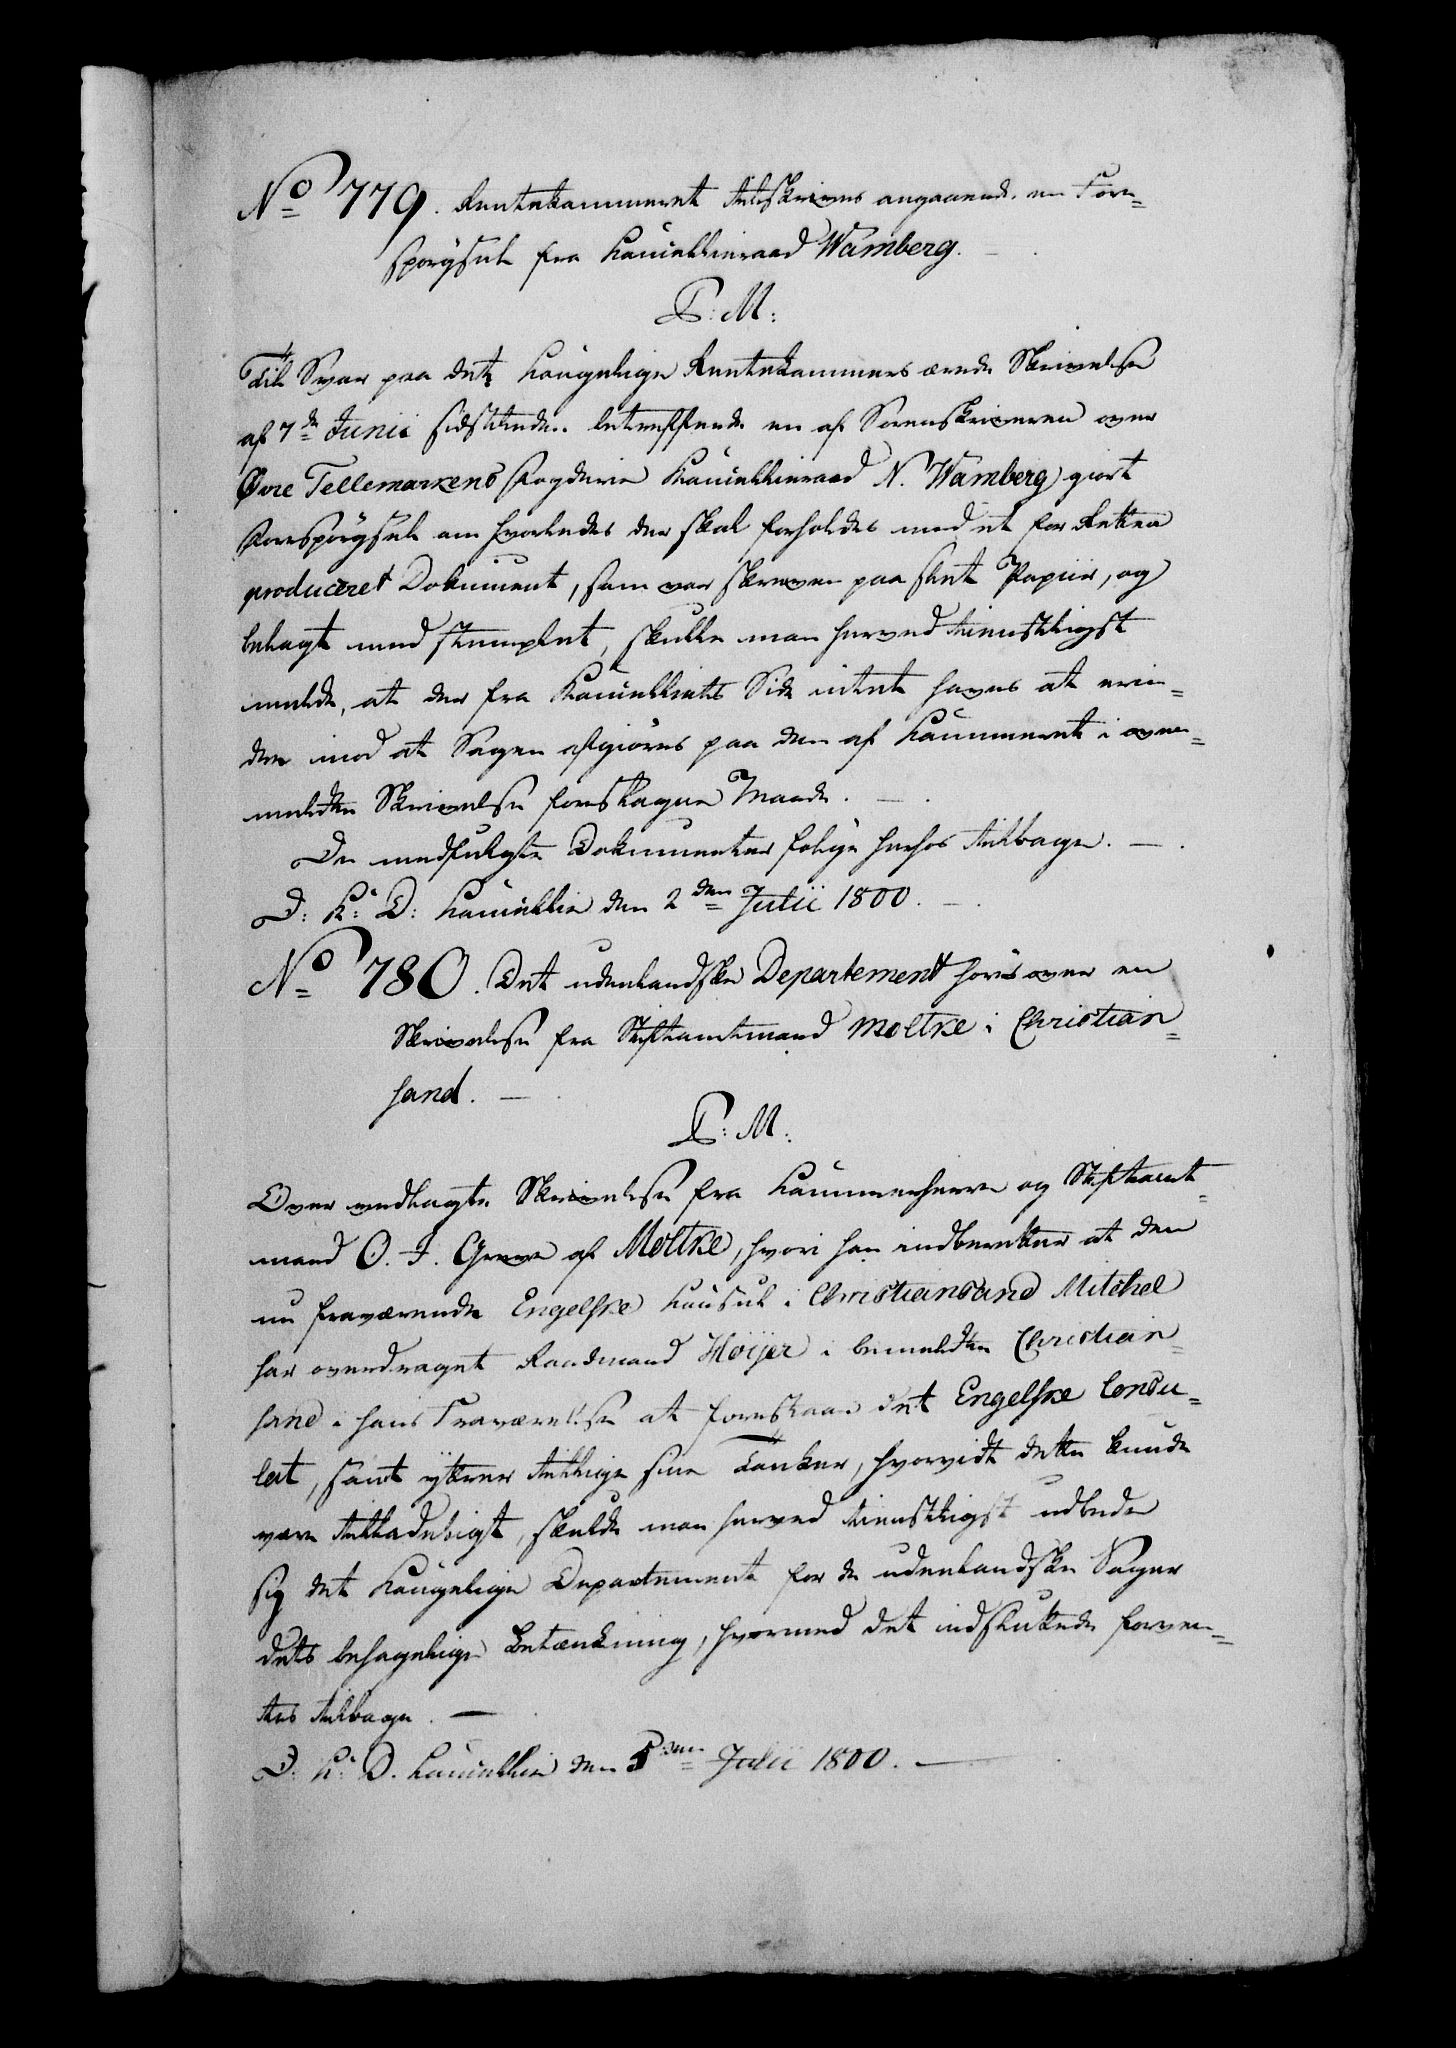 No 779. Rentekammeret tilskrives angaaende en Fore=
spørgsel fra Kancellieraad Wamberg.
P: M:
Til Svar paa det kongelige Rentekammers ærede Skrivelse
af 7de Junii sidstleden betreffende en af Sorenskriveren over
Øvre Tellemarkens Fogderie Kancellieraad N. Wamberg giort
Forespørgsel om hvorledes der skal forholdes med et for Retten
produceret Dokument, som var skreven paa slet Papiir, og
belagt med stemplet, skulle man herved tienstligst
melde, at der fra Kancelliets Side intet haves at erin=
dre imod at Sagen afgiøres paa den af Kammeret i oven=
meldte Skrivelse foreslagne Maade.
De medfulgte Dokumenter følge herhos tilbage.
D: K: D: Kancellie den 2den Julii 1800.
No 780. Det udenlandske Departement høres over en
Skrivelse fra Stiftamtmand Moltke i Christian=
sand.
P: M:
Over vedlagte Skrivelse fra Kammerherre og Stiftamt=
mand O. J. Greve af Moltke, hvori han indberetter at den
nu fraværende Engelske Konsul i Christiansand Mitchel
har overdraget Raadmand Høijer i bemeldte Christian=
sand i hans Fraværelse at forestaae det Engelske Consu=
lat, samt yttrer tillige sine Tanker, hvorvidt dette kunde
være tilladeligt, skulde man herved tienstligst udbede
sig det kongelige Departement for de udenlandske Sager
dets behagelige Betænkning, hvormed det indsluttede forven=
tes tilbage.
D: K: D. Kancellie den 5den Julii 1800.